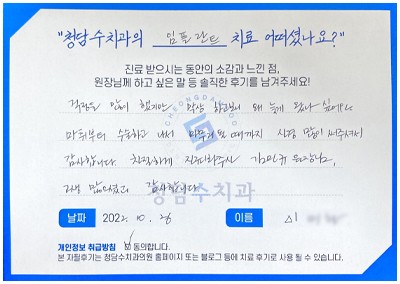 "청담수치과의 임플란트 치료 어떠셨나요?"
진료 받으시는 동안의 소감과 느낀 점,
원장님께 하고 싶은 말 등 솔직한 후기를 남겨주세요!
걱정도 많이 했지만 막상 하고나서 왜 늦게 했나 싶어요
마취부터 수술하고 나서 마무리 될 때까지 신경 많이 써주셔서
감사합니다. 친절하게 진료해주신 원장님,
고생 많으셨고 감사합니다
CHEONGDAM
청담수치과
날짜 2022. 10. 26 이름
개인정보 취급방침 동의합니다.
본 자필후기는 청담수치과의원 홈페이지 또는 블로그 등에 치료 후기로 사용 될 수 있습니다.